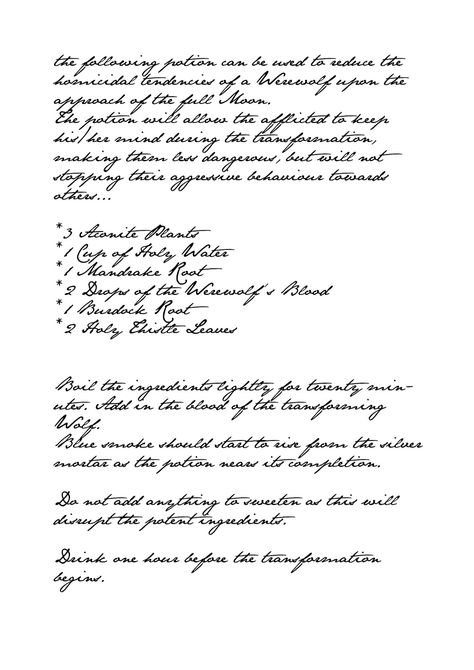 the following potion can be used to reduce the
homicidal tendencies of a Werewolf upon the
approach of the full Moon.
The potion will allow the afflicted to keep
his/her mind during the transformation,
making them less dangerous, but will not
stopping their aggressive behaviour towards
others...
*3 Aconite Plants
*1 Cup of Holy Water
*1 Mandrake Root
*2 Drops of the Werewolf's Blood
*1 Burdock Root
*2 Holy Thistle Leaves
Boil the ingredients lightly for twenty min-
utes. Add in the blood of the transforming
Wolf.
Blue smoke should start to rise from the silver
mortar as the potion nears its completion.
Do not add anything to sweeten as this will
disrupt the potent ingredients.
Drink one hour before the transformation
begins.